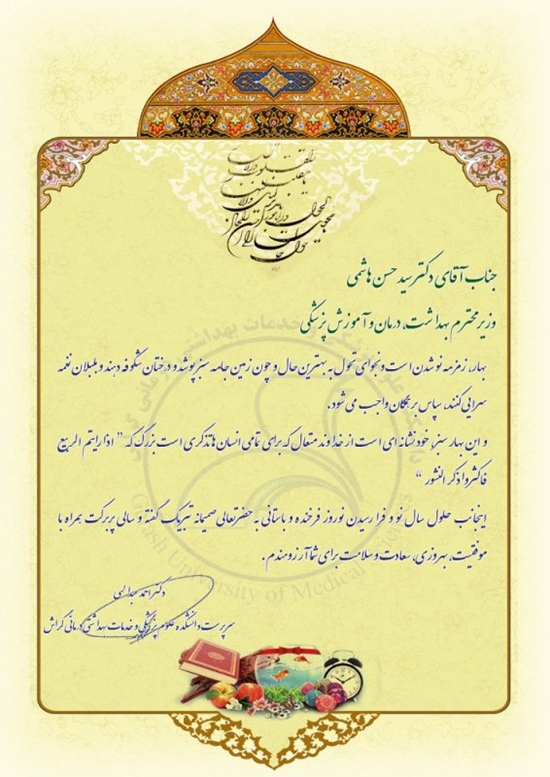 جناب آقای دکتر سید حسن هاشمی
وزیر محترم بهداشت، درمان و آموزش پزشکی
بهار، زمزمه نو شدن است و نجوای تحول به بهترین حال و چون زمین جامه سبز پوشد و درختان شکوفه دهند و بلبلان نغمه
سرایی کنند، سپاس بر همگان واجب می شود.
و این بهار سبز، خود نشانه ای است از خداوند متعال که برای تمامی انسان ها تذکری است بزرگ که " اذا رایتم الربیع
فاکثروا ذکر النشور "
اینجانب حلول سال نو و فرا رسیدن نوروز فرخنده و باستانی به حضرتعالی صمیمانه تبریک گفته و سالی پر برکت همراه با
موفقیت، بهروزی، سعادت و سلامت برای شما آرزومندم.
دکتر احمد عبدالهی
سرپرست دانشکده علوم پزشکی و خدمات بهداشتی درمانی گراش
University of Medical Sciences